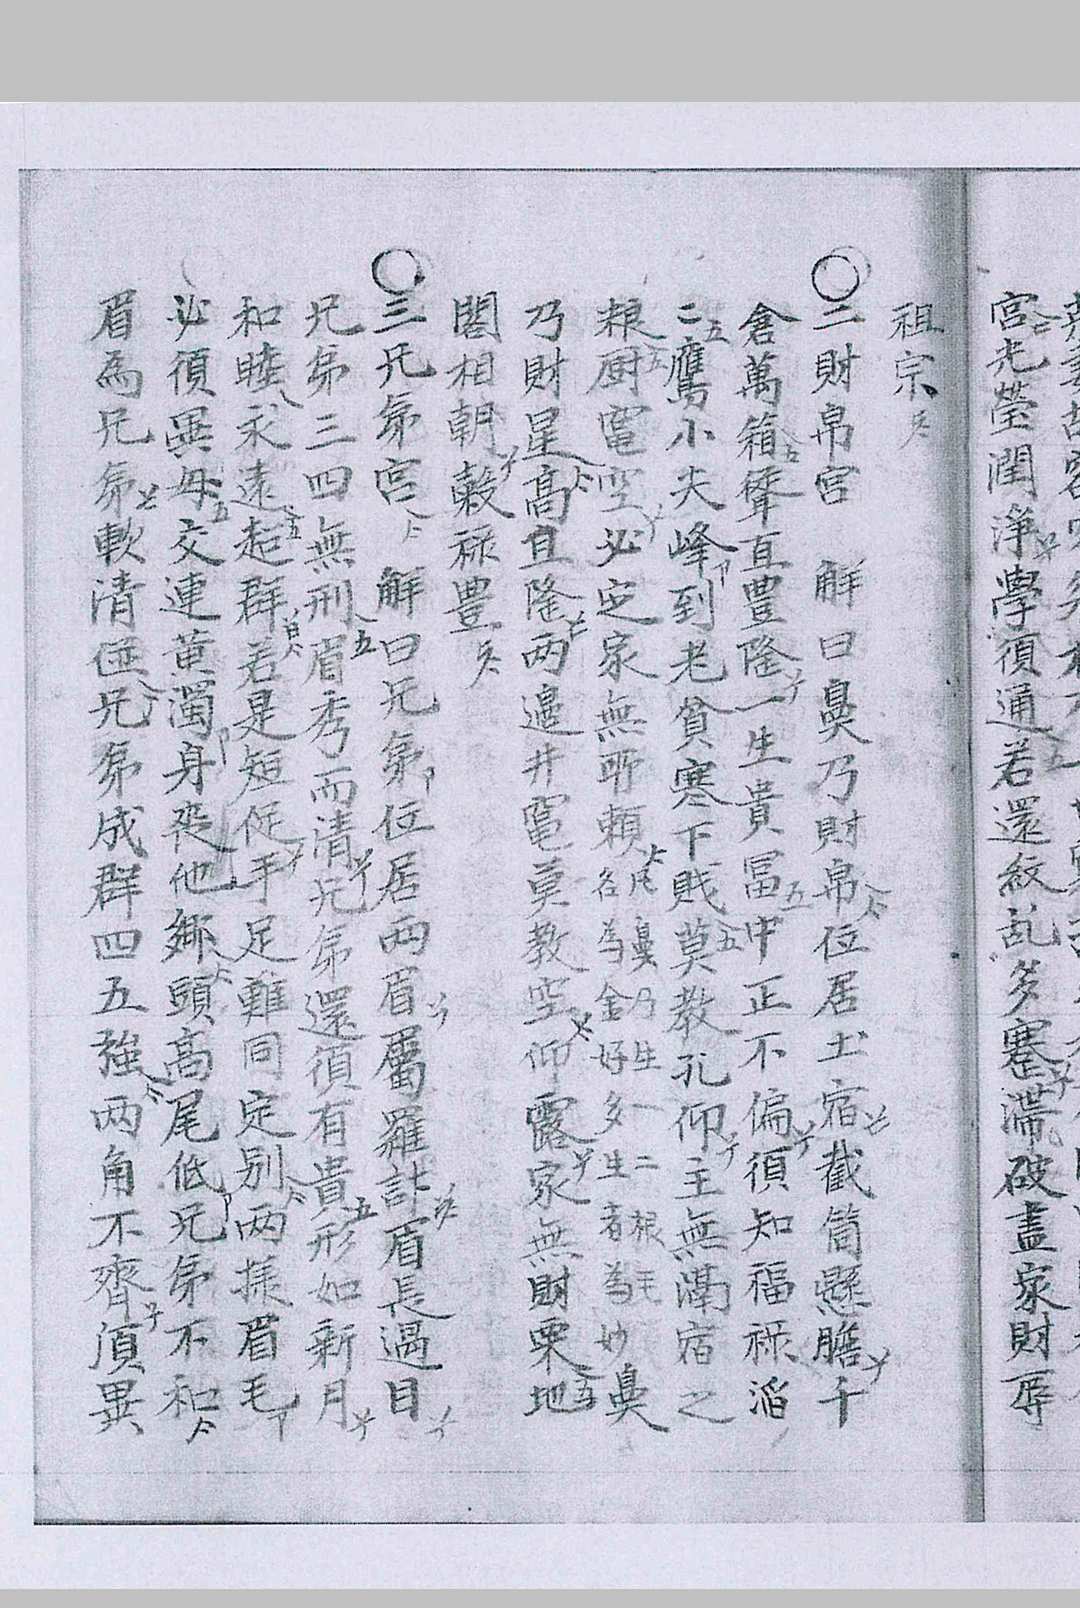 宮光瑩潤淨學須通若還紋乱多蹇滯破盡家財辱
祖宗
〇二財帛宮 解曰鼻乃財帛位居土宿截筒懸膽千
倉萬箱聳直豊隆一生貴冨中正不偏須知福祿滔
二鷹小尖峰到老貧寒下賎莫教孔仰主無滿宿之
粮厨竃空必定家無聊頼 鼻
尾鼻乃生一二根主
名為金好多生者為妙
乃財星高且隆两邉井竃莫教空仰露家無財栗地
閣相朝穀禄豊
〇三兄弟宮 解曰兄弟位居两眉屬羅計眉長過目
兄弟三四無刑眉秀而清兄弟還須有貴形如新月
和睦永遠超群若是短促手足難同定别两㨾眉毛
必須異母交連黄濁身喪他鄉頭高尾低兄弟不和
眉為兄弟軟清 兄弟成群四五强两角不齊須異